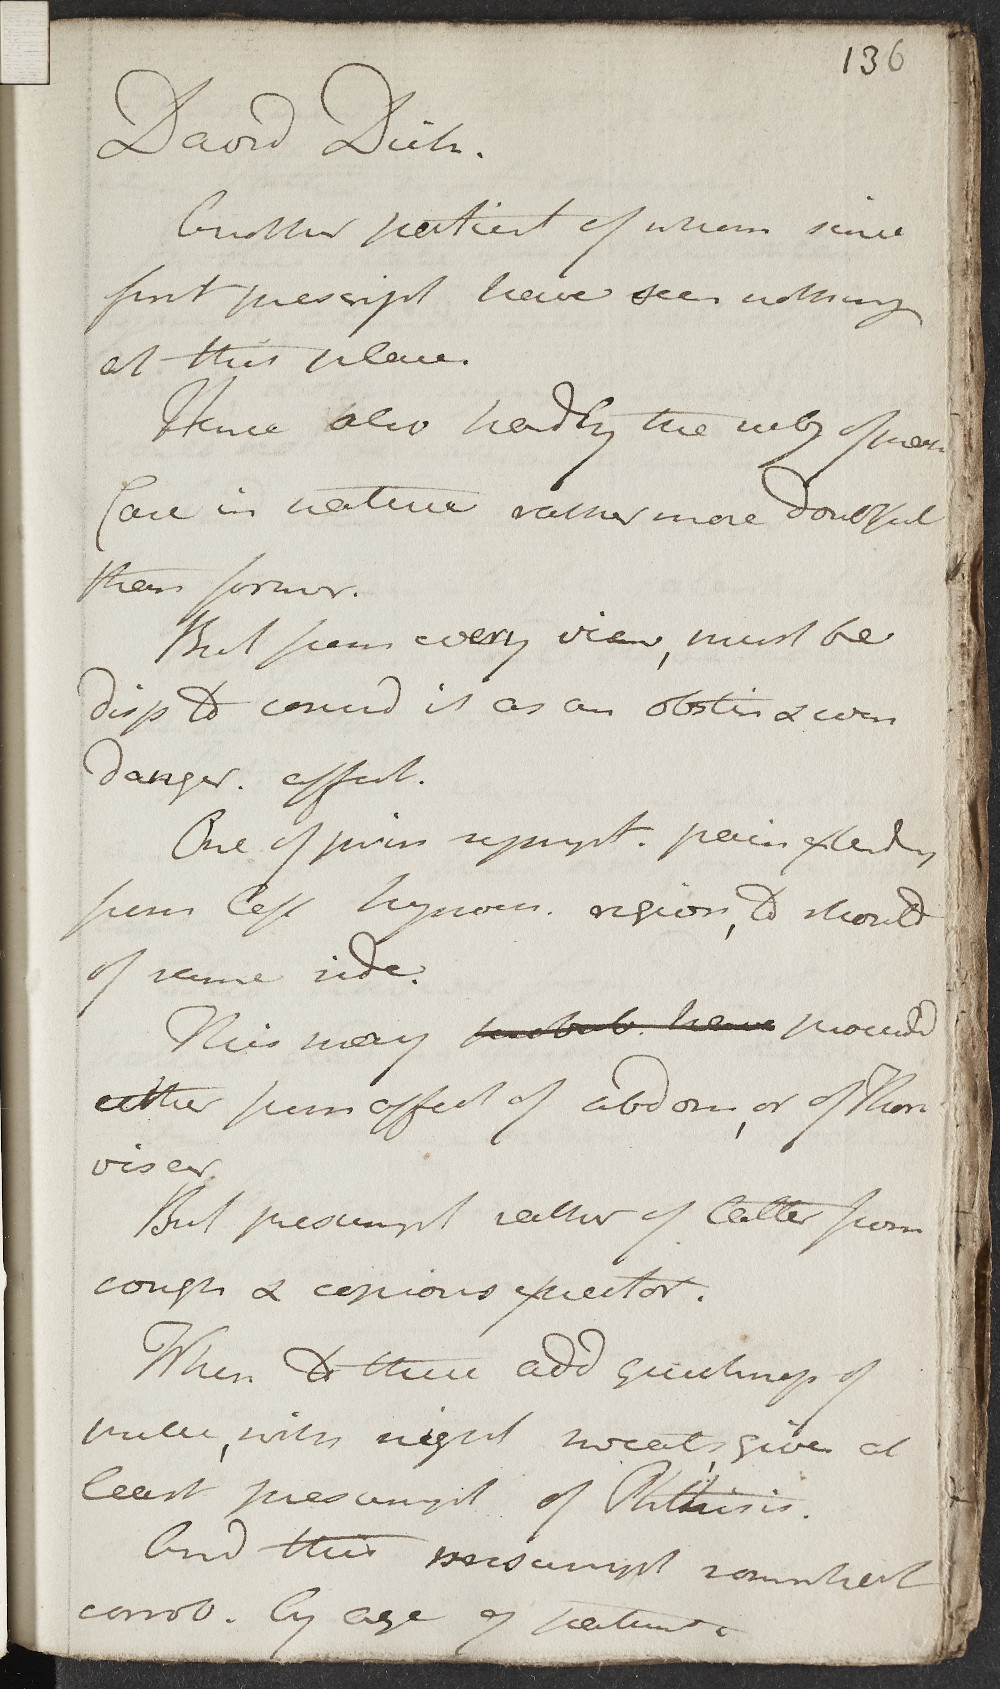 136
David Dick.
Another patient of whom since
first prescript have seen nothing
at this place.
Hence also hardly the subj of
Case in nature rather more doubtful
than former.
But from every view, must be
disp to consid it as an obstin & even
danger. affect.
One of prin sympt. pain extendg
from left hypoch. region, to should
of same side.
This may probab. have proceedd
either from affect of abdom, or of Thor
viscer.
But presumpt rather of latter from
cough & copious expector.
When to these add quickness of
pulse, with night sweats, give at
least presumpt of Phthisis.
And this presumpt somewhat
corrob. by age of patient.